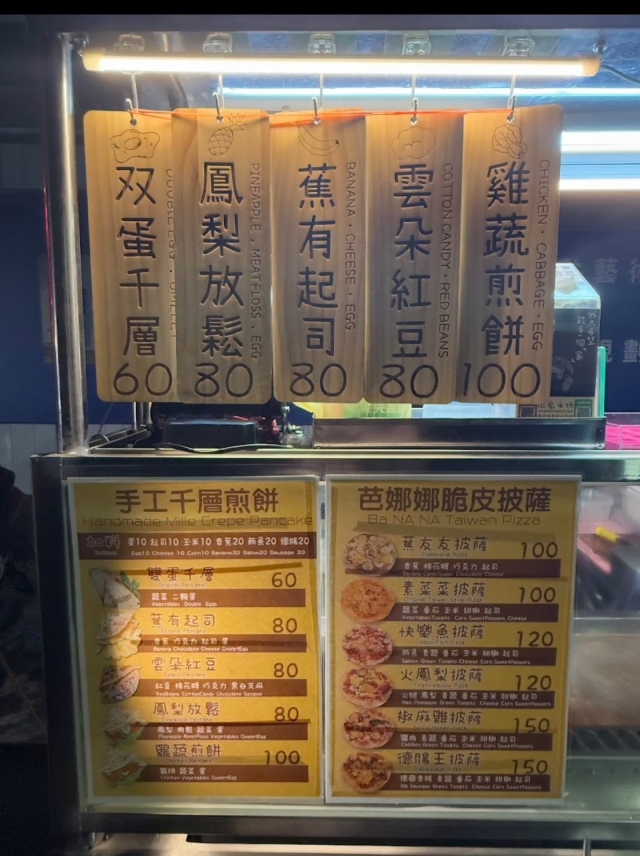 双蛋千層
60
鳳梨放鬆
PINEAPPLE · MEAT FLOSS · EGG
80
蕉有起司
BANANA · CHEESE · EGG
80
雲朵紅豆
COTTON CANDY · RED BEANS
80
雞蔬煎餅
CHICKEN · CABBAGE · EGG
100
手工千層煎餅
Handmade Mille Crepe Pancake
加料 蛋10 起司10 玉米10 香蕉20 鮪魚20 德腸20
Egg10 Cheese 10 Corn10 Banana20 Salmon20 Sausage 20
雙蛋千層 60
蔬菜 二顆蛋
Vegetables Double Eggs
蕉有起司 80
香蕉 巧克力 起司 蛋
Banana Chocolate Cheese
雲朵紅豆 80
紅豆 棉花糖 巧克力 黑白芝麻
RedBeans CottonCandy Chocolate Sesame
鳳梨放鬆 80
鳳梨 肉鬆 蔬菜 蛋
Pineapple MeatFloss Vegetables
鷄蔬煎餅 100
雞排 蔬菜 蛋
Chicken Vegetables
芭娜娜脆皮披薩
Ba NA NA Taiwan Pizza
蕉友友披薩 100
香蕉 棉花糖 巧克力 起司
素菜菜披薩 100
蔬菜 番茄 玉米 甜椒 起司
Vegetables Tomato Corn SweetPeppers Cheese
快樂魚披薩 120
鮪魚 青醬 番茄 玉米 甜椒 起司
Salmon Green Tomato Cheese Corn SweetPeppers
火鳳梨披薩 120
火腿 鳳梨 青醬 番茄 玉米 甜椒 起司
Ham Pineapple Green Tomato Cheese Corn SweetPeppers
椒麻雞披薩 150
雞肉 青醬 番茄 玉米 甜椒 起司
Chicken Green Tomato Cheese Corn SweetPeppers
德腸王披薩 150
德國香腸 青醬 番茄 玉米 甜椒 起司
Sausage Green Tomato Cheese Corn SweetPeppers